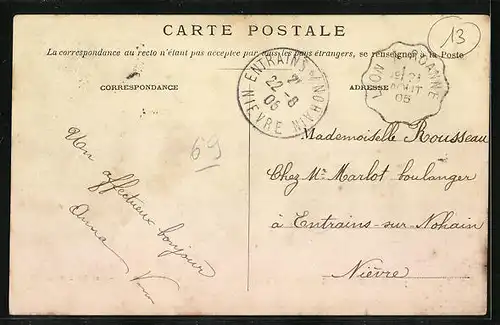 CARTE POSTALE
13
La correspondance au recto n'étant pas acceptée par tous les pays étrangers, se renseigner à la Poste
CORRESPONDANCE
ADRESSE
ENTRAINS S/NOHAIN
22 - 8
05
NIEVRE
LYON
ANNE
21
AOUT
05
69
Un
affectueux bonjour
Anna
Mademoiselle Rousseau
Chez Mr Marlot boulanger
à Entrains-sur-Nohain
Nièvre